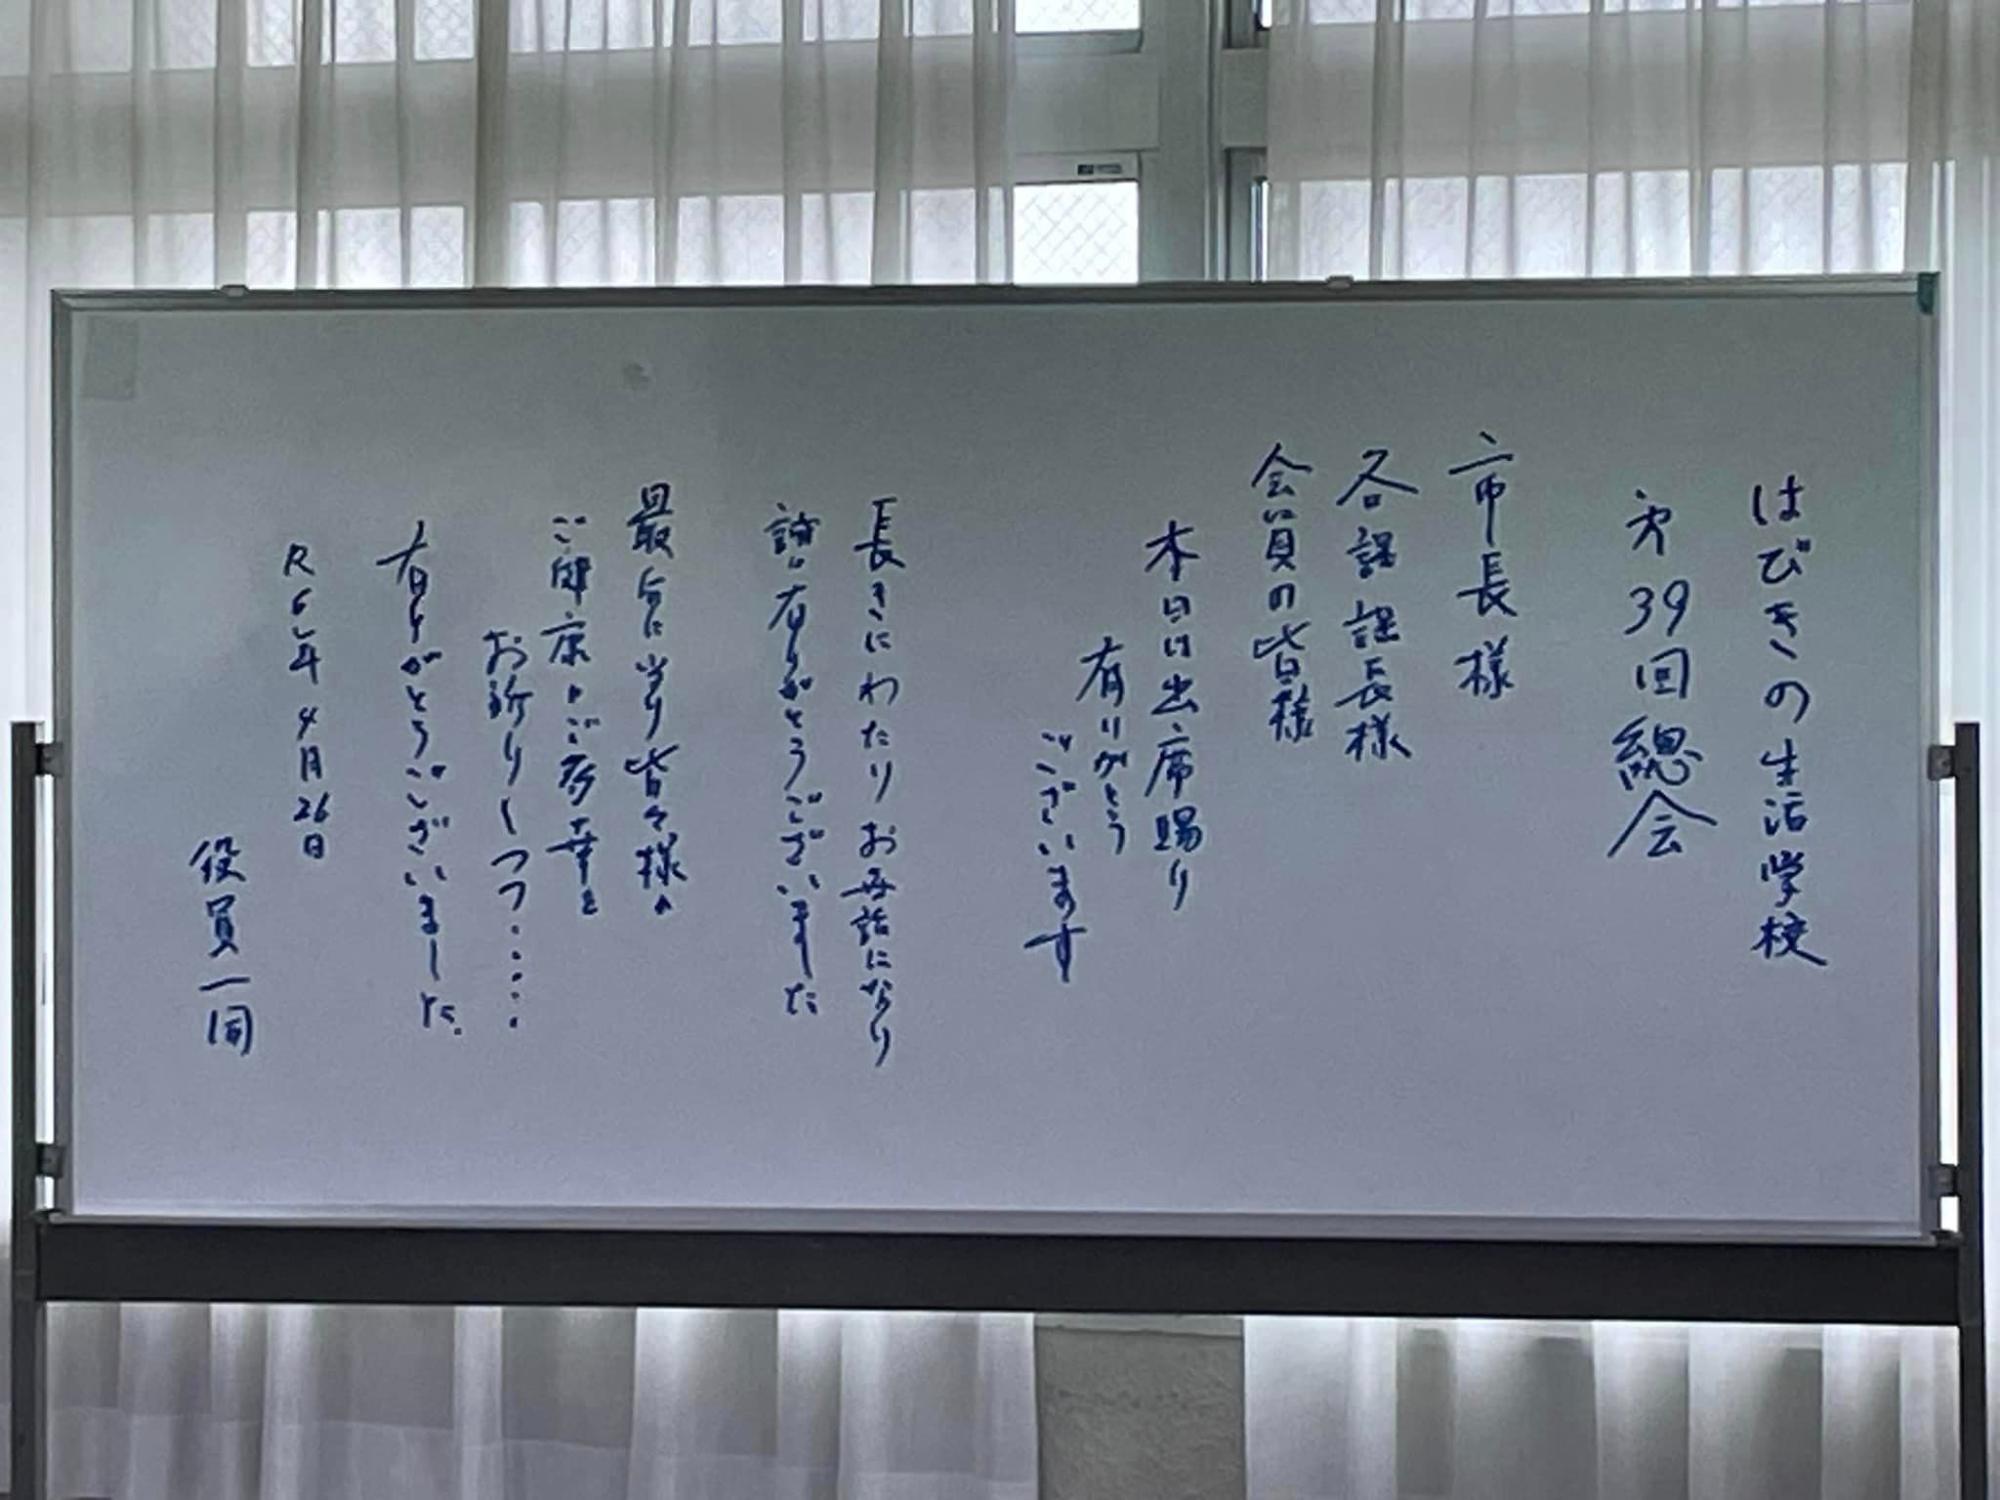 はびきの生活学校
㐧39回總会
市長様
各課課長様
会員の皆様
本日は出席賜り
有りがとう
ございます
長きにわたりお世話になり
誠に有りがとうございました
最后に当り皆々様の
ご健康とご多幸を
お祈りしつつ……
有りがとうございました。
R6年4月26日
役員一同